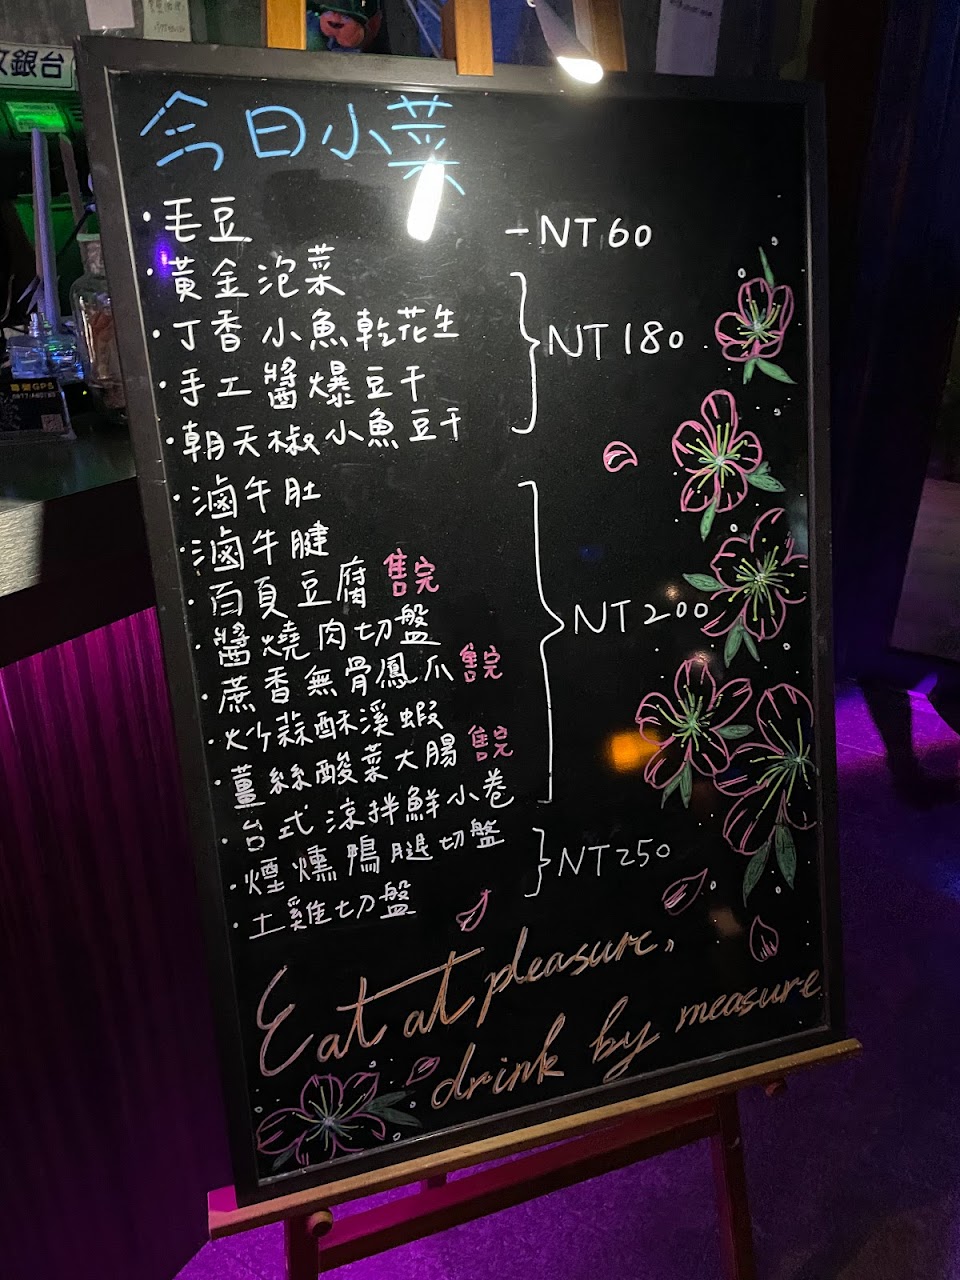 收銀台
今日小菜
·毛豆 -NT 60
·黃金泡菜
·丁香小魚乾花生
NT 180
·手工醬爆豆干
·朝天椒小魚豆干
·滷牛肚
·滷牛腱
·百頁豆腐 售完
·醬燒肉切盤
NT 200
·蔗香無骨鳳爪 售完
·炒蒜酥溪蝦
·薑絲酸菜大腸 售完
·台式涼拌鮮小卷
·煙燻鴨腿切盤
NT 250
·土雞切盤
Eat at pleasure,
drink by measure